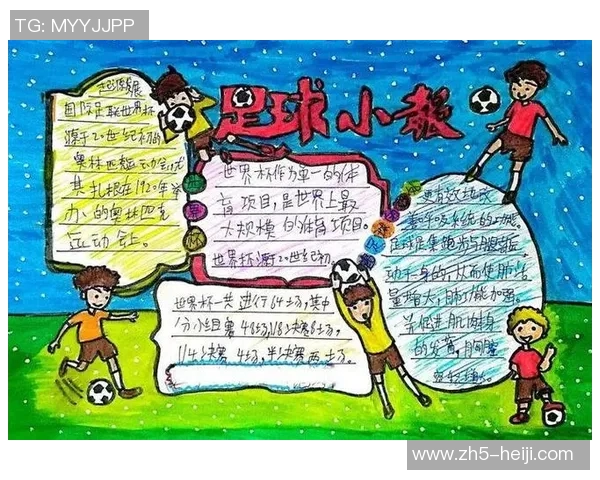 TG: MYYJJPP
足球小报
起源发展
国际足联世界杯
源于20世纪初的
奥林匹克运动会足
其扎根在1920年举
办的奥林匹克
运动会上。
世界杯作为单一的体
育项目,是世界上最
大规模的体育项目。
世界杯源于20世纪初
世界杯一共进行64场,其中
分小组赛48场,1/8决赛8场,
1/4决赛4场,半决赛两场。
更有效地改
善呼吸系统的功能。
足球是集跑步与
动于一身的,从而使肺活
量增大,功能加强。
并促进肌肉
的发育,
www.zh5-heiji.com